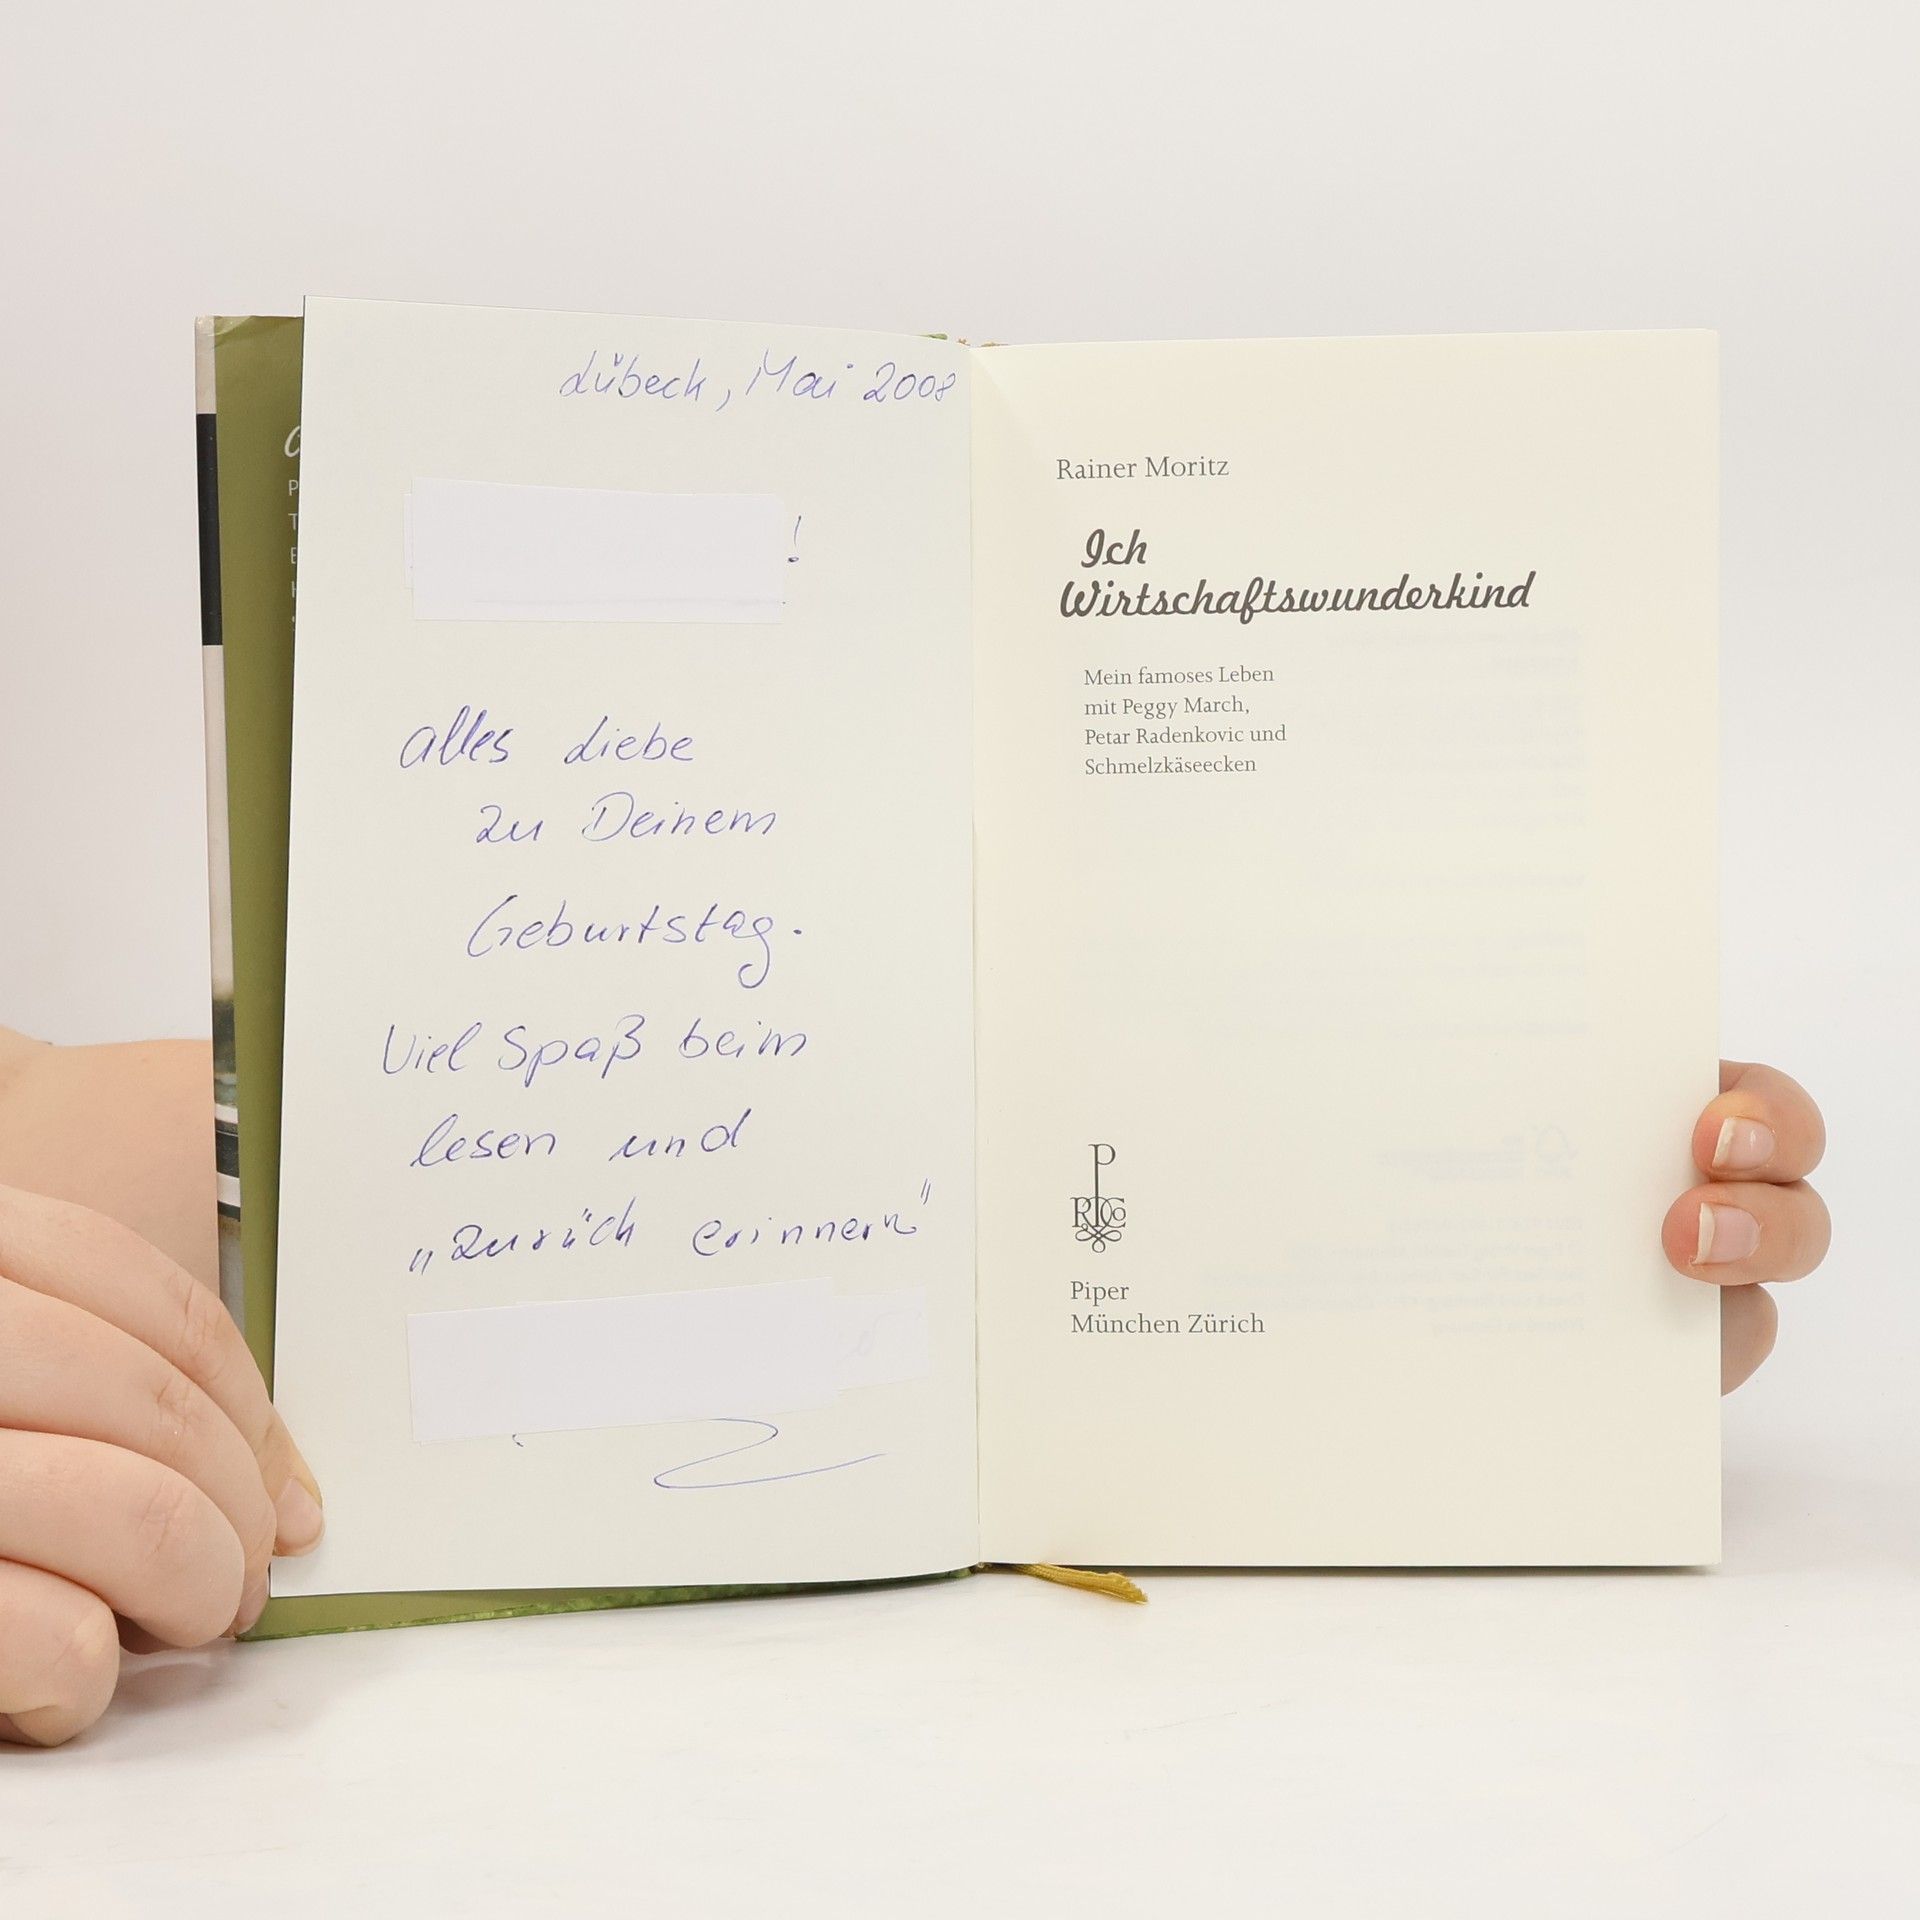 Lübeck, Mai 2008
!
alles Liebe
zu Deinem
Geburtstag.
Viel Spaß beim
lesen und
„zurück erinnern"
Rainer Moritz
Ich
Wirtschaftswunderkind
Mein famoses Leben
mit Peggy March,
Petar Radenkovic und
Schmelzkäseecken
Piper
München Zürich